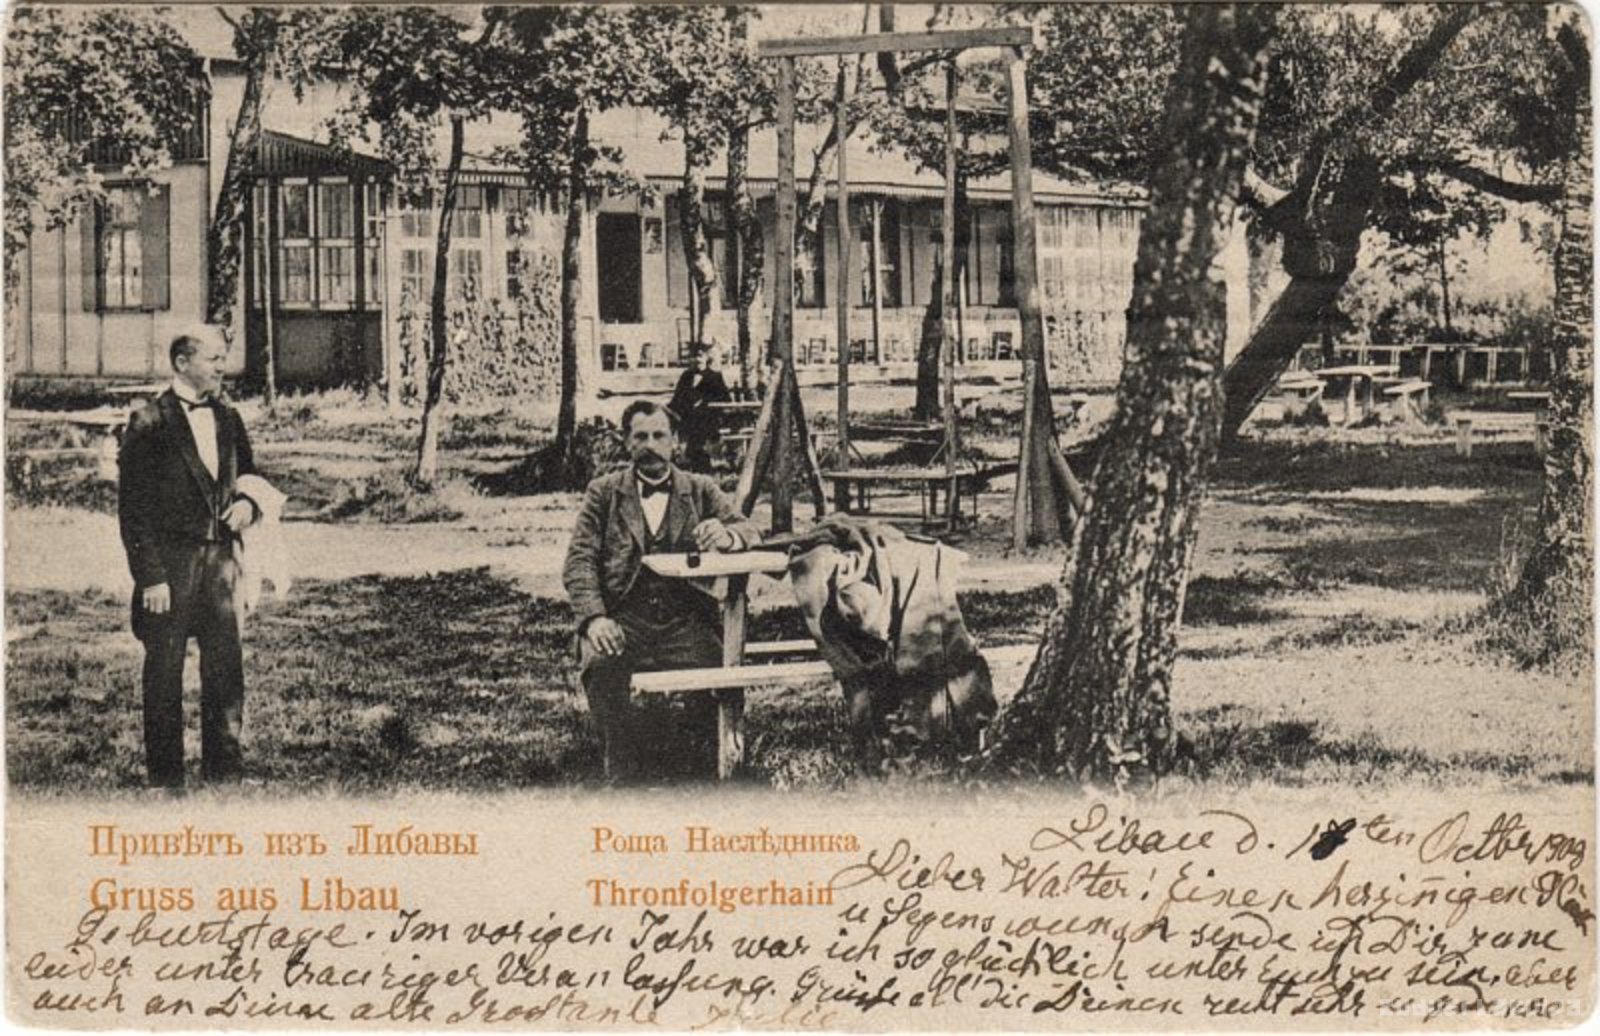 Привѣтъ изъ Либавы
Gruss aus Libau
Роща Наслѣдника
Thronfolgerhain
Libau d. ten Octbr 1908
Lieber Walter! Einen herzinnigen Glück
u Segenswunsch sende ich Dir zum
Geburtstage. Im vorigen Jahr war ich so glücklich unter Euch zu sein, aber
leider unter trauriger Veranlassung. Grüsse all' die Deinen recht sehr
auch an Deine alte Grosstante